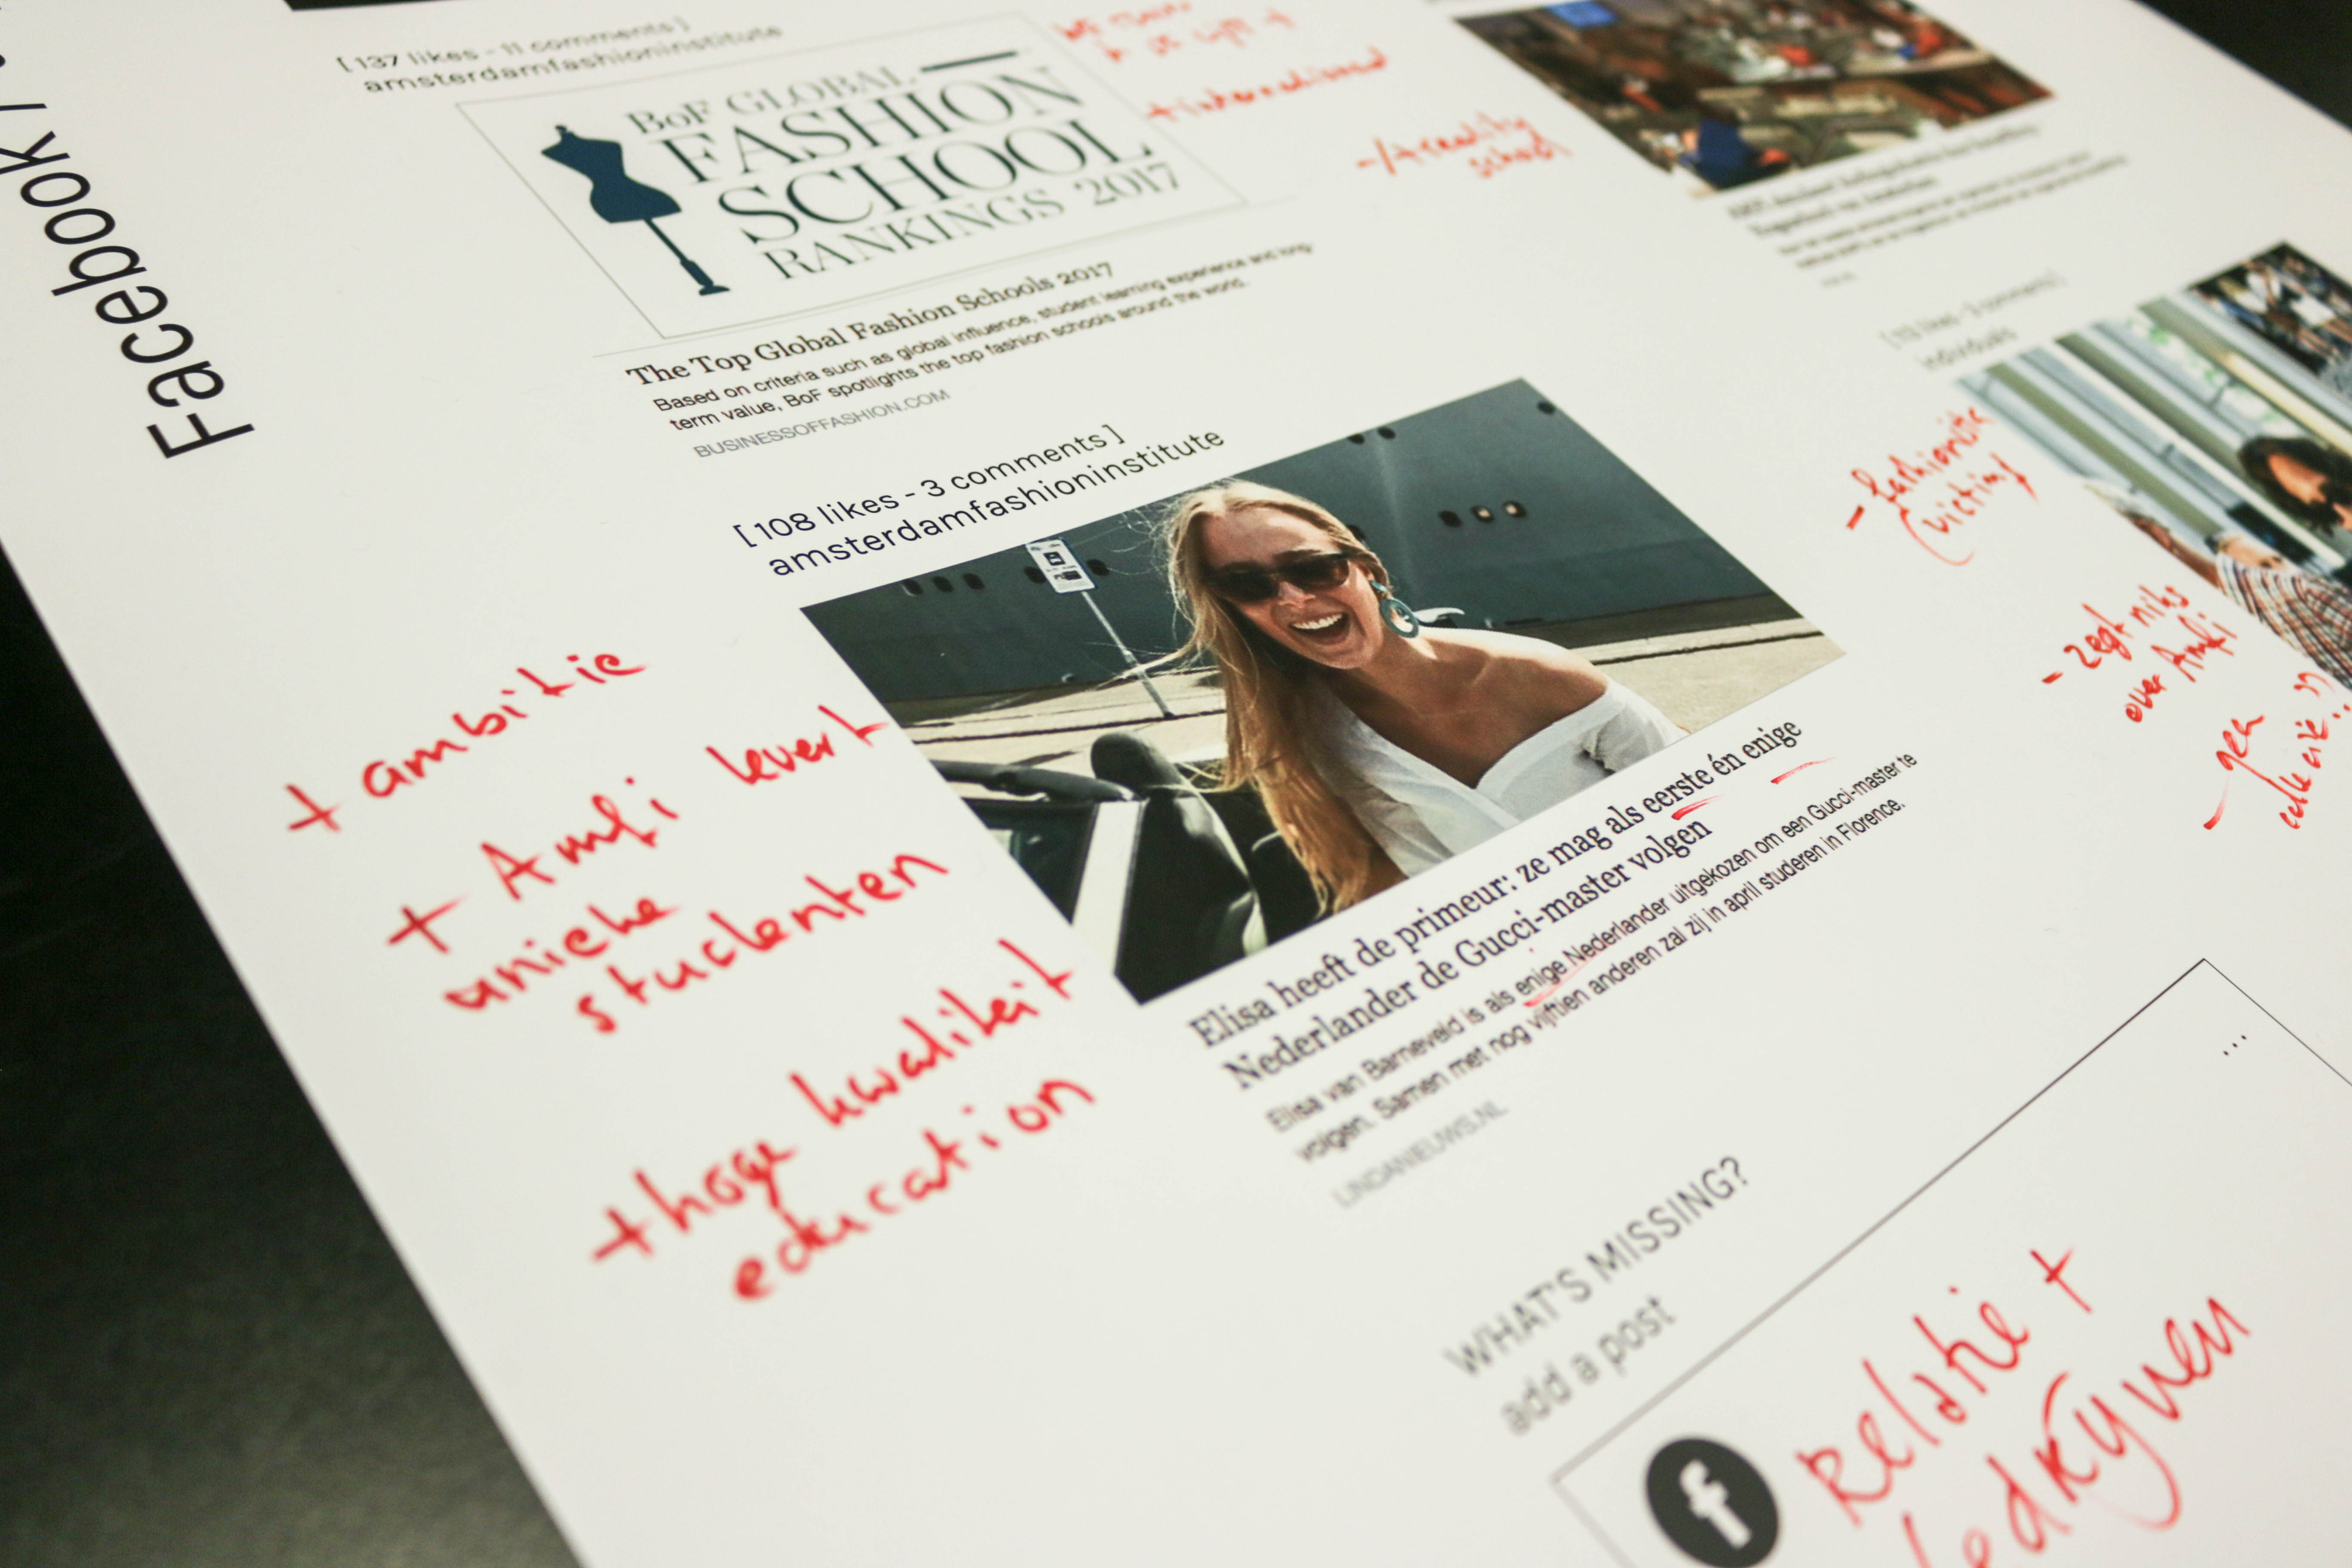 Facebook /
[ 137 likes - 11 comments ]
amsterdamfashioninstitute
BoF GLOBAL
FASHION
SCHOOL
RANKINGS 2017
The Top Global Fashion Schools 2017
Based on criteria such as global influence, student learning experience and long-
term value, BoF spotlights the top fashion schools around the world.
BUSINESSOFFASHION.COM
-/+ reality
school
[ 108 likes - 3 comments ]
amsterdamfashioninstitute
+ ambitie
+ Amfi levert
unieke
studenten
+ hoge kwaliteit
education
Elisa heeft de primeur: ze mag als eerste én enige
Nederlander de Gucci-master volgen
Elisa van Barneveld is als enige Nederlander uitgekozen om een Gucci-master te
volgen. Samen met nog vijftien anderen zal zij in april studeren in Florence.
LINDANIEUWS.NL
individuals
- zegt niks
over Amfi
- geen
WHAT'S MISSING?
add a post
...
f
Relatie +